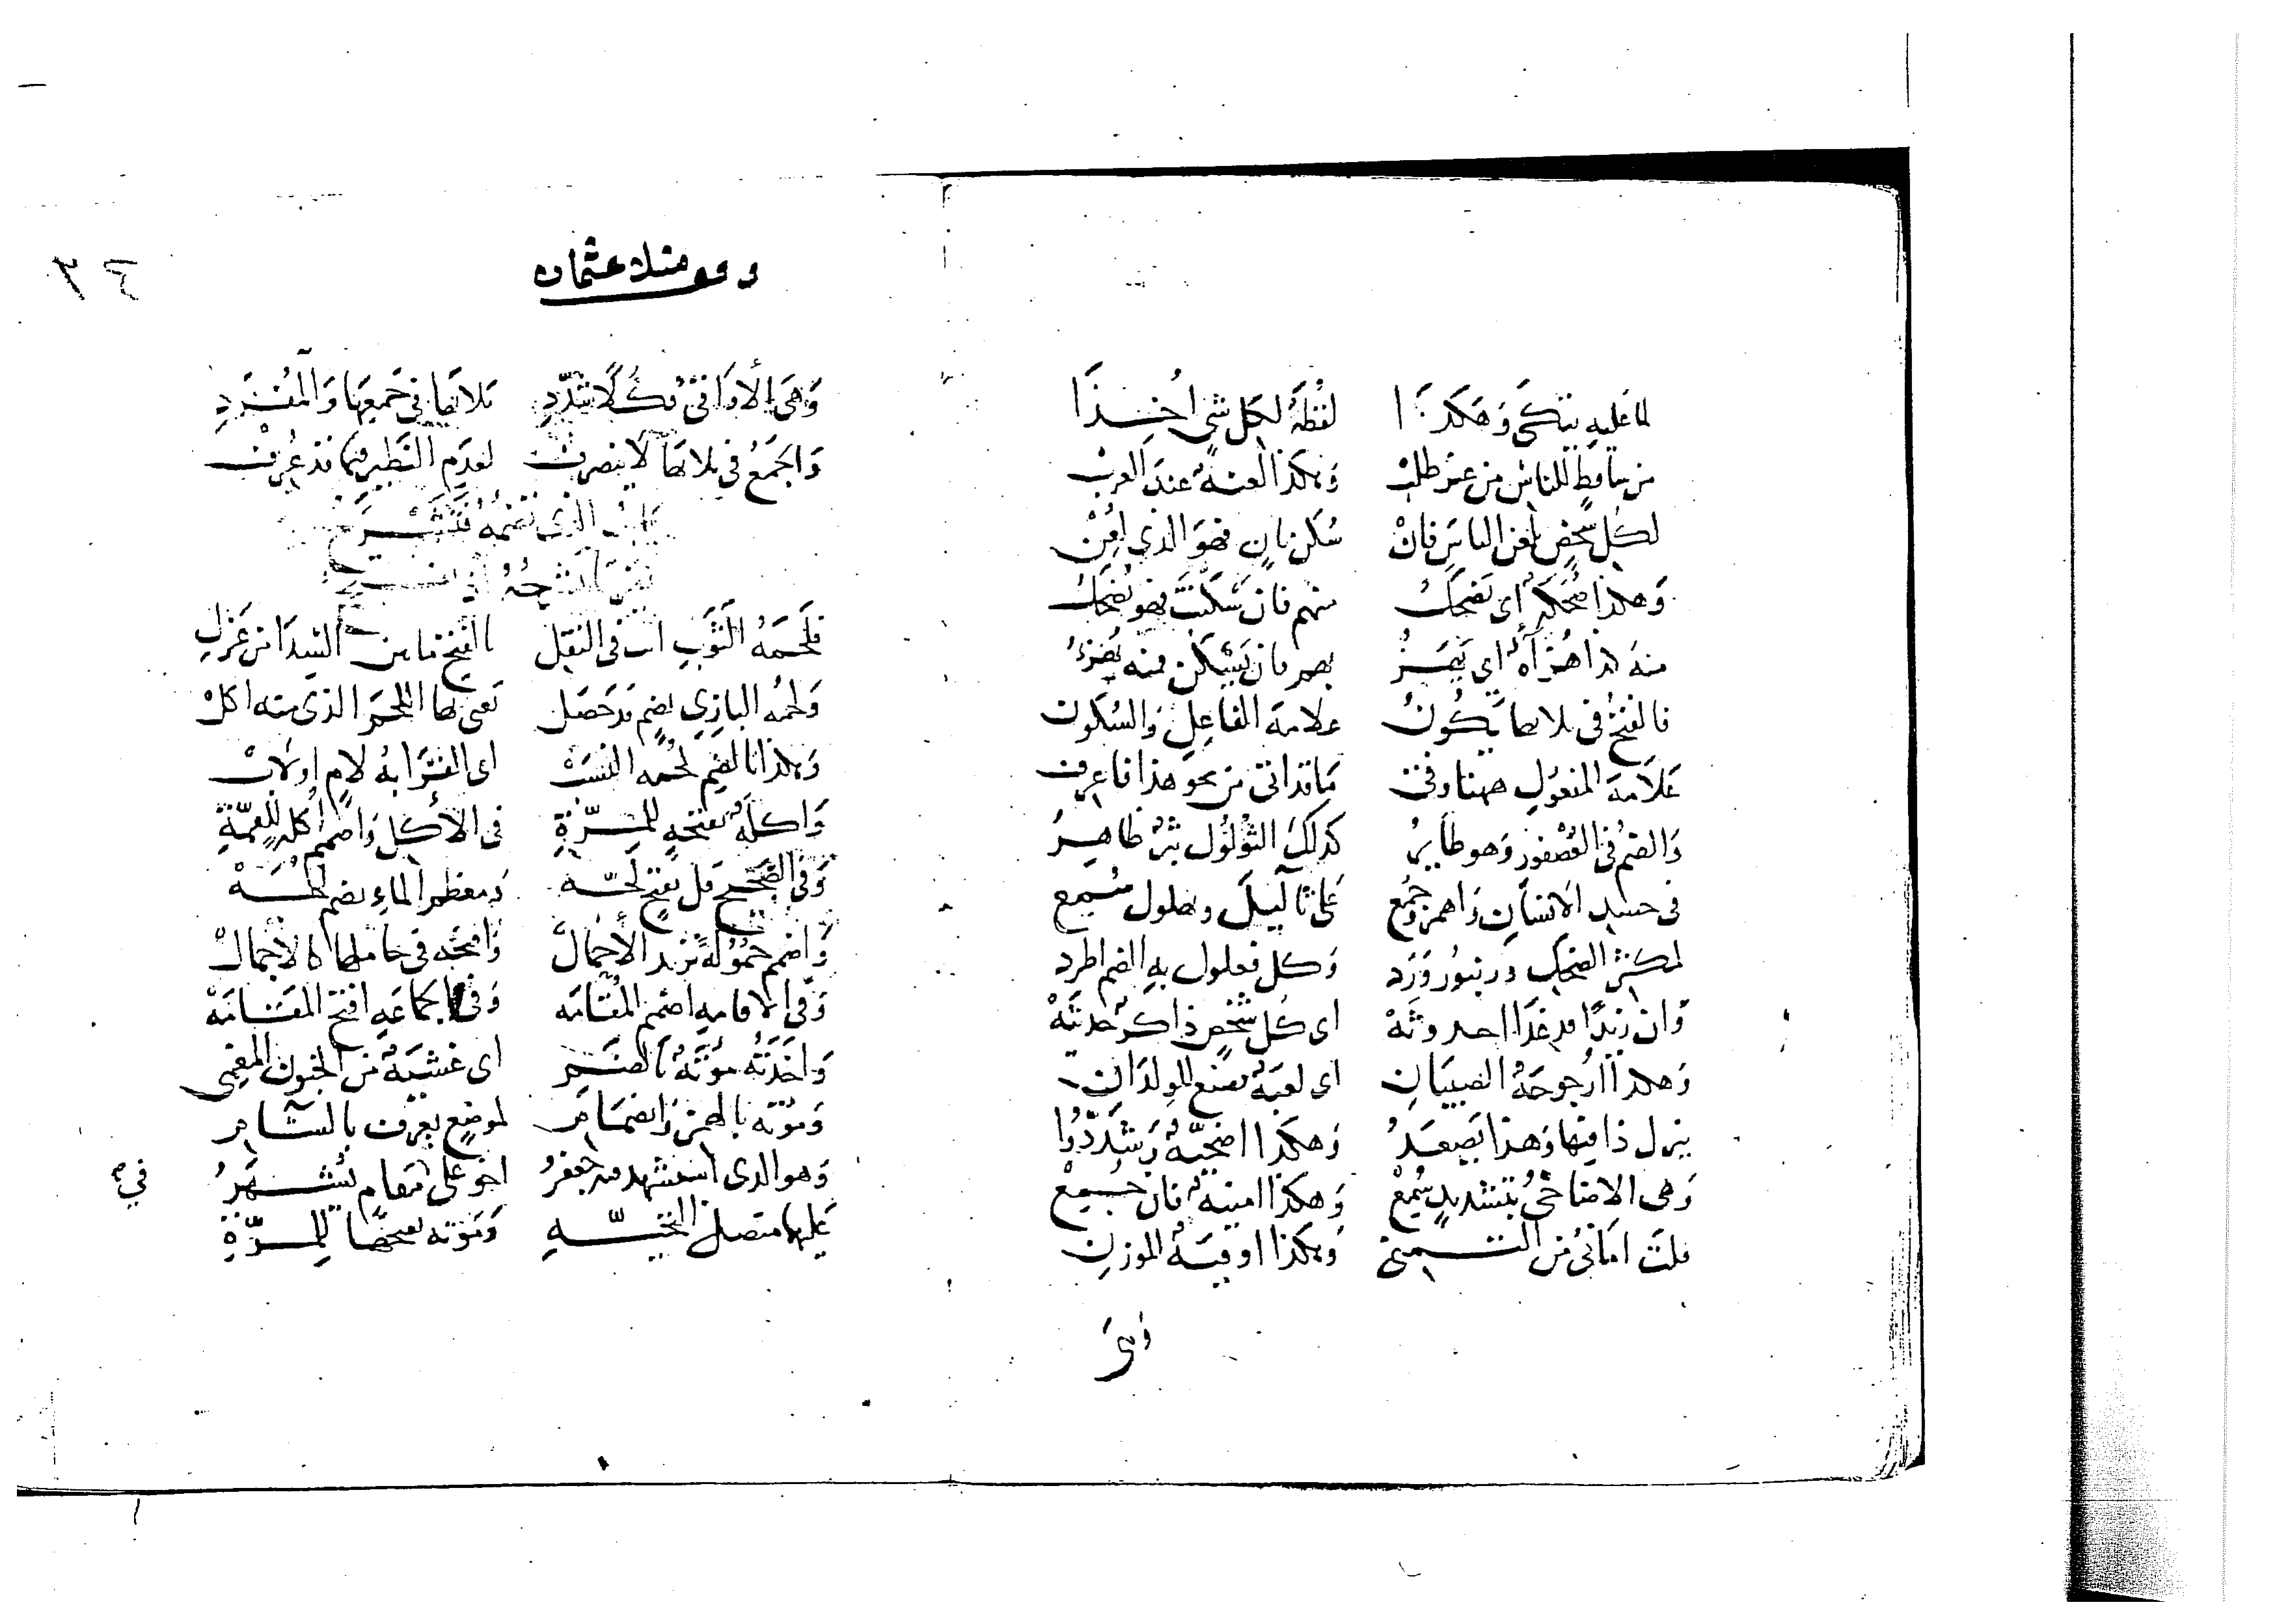 لما عليه يتكى وهكذا لقطة لكل شي أخذا
من ساقط للناس من غير طلب وهكذا لعنة عند العرب
لكل شخص لعن الناس فان سكن ثان فهو الذي لعن
وهكذا ضحكة اى يضحك منهم فان سكنت فهو يضحك
منه كذا هزأة اى يهزؤ بهم فان يسكن فمنه يهزؤ
فالفتح فى ثلاثها يكون علامة الفاعل والسكون
علامة المفعول ههنا وفى ما قد اتى من نحو هذا فاعرف
والضم فى العصفور وهو طاير كذلك الثؤلول بثر ظاهر
فى جسد الانسان واهمز وجمع على ثآليل وبهلول سمع
لمكثر الضحك وزنبور ورد وكل فعلول به الضم اطرد
وان زيدا قد غدا احدوثة اى كل شخص ذاكر حديثه
وهكذا أرجوحة الصبيان اى لعبة تصنع للولدان
ينزل ذا فيها وهذا يصعد وهكذا اضحية وشددوا
وهى الاضاحى بتشديد سمع وهكذا امنية فان جمع
قلت امانى من التمنى وهكذا اوقية للوزن
وهى
وقف منلا عثمان
٣٤
وهى الأواقى وكلا شدد ثلاثها فى جمعها والمفرد
والجمع فى ثلاثها لا ينصرف لعدم النظير فيما قد عرف
باب الذي تضمه فتشرح
فلحمة الثوب اتت فى النقل بالفتح ما بين السدا من غزل
ولحمة البازي بضم قد حصل تعنى بها اللحم الذى منه اكل
وهكذا بالضم لحمة النسب اى القرابة لام او لاب
واكلة بفتحة للمرة فى الأكل واضمم اكلة للقمة
وفى الضجيج قل بفتح لجة ومعظم الماء بضم لجة
واضمم حمولة تريد الأحمال وافتحه فى حاملها كالاجمال
وفى الاقامة اضمم المقامه وفى الجماعة افتح المقامه
واخذته موتة بالضم اى غشية من الجنون المغمى
وموتة بالهمز وانضمام لموضع يعرف بالشام
وهو الذى استشهد فيه جعفر اخو على بمقام يشهر
عليهما متصل التحية وموتة بفتحها للمرة
فى